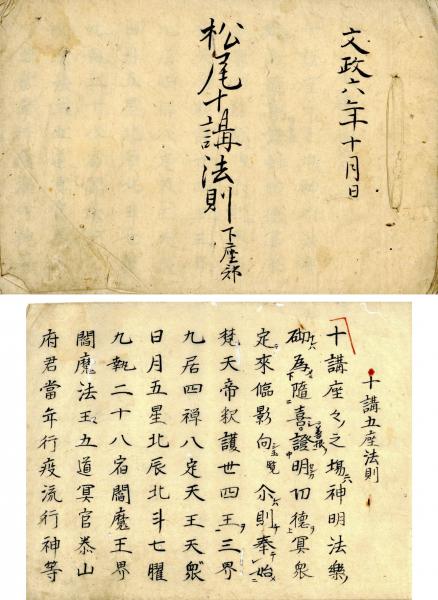 文政六年十月日
松尾十講法則
下座部
十講五座法則
十講座々之場神明法樂
砌為隨喜證明功德冥衆
定來臨影向𠆢則奉始
梵天帝釈護世四王三界
九居四禅八定天王天衆
日月五星北辰北斗七曜
九執二十八宿閻魔王界
閻魔法王五道冥官泰山
府君當年行疫流行神等